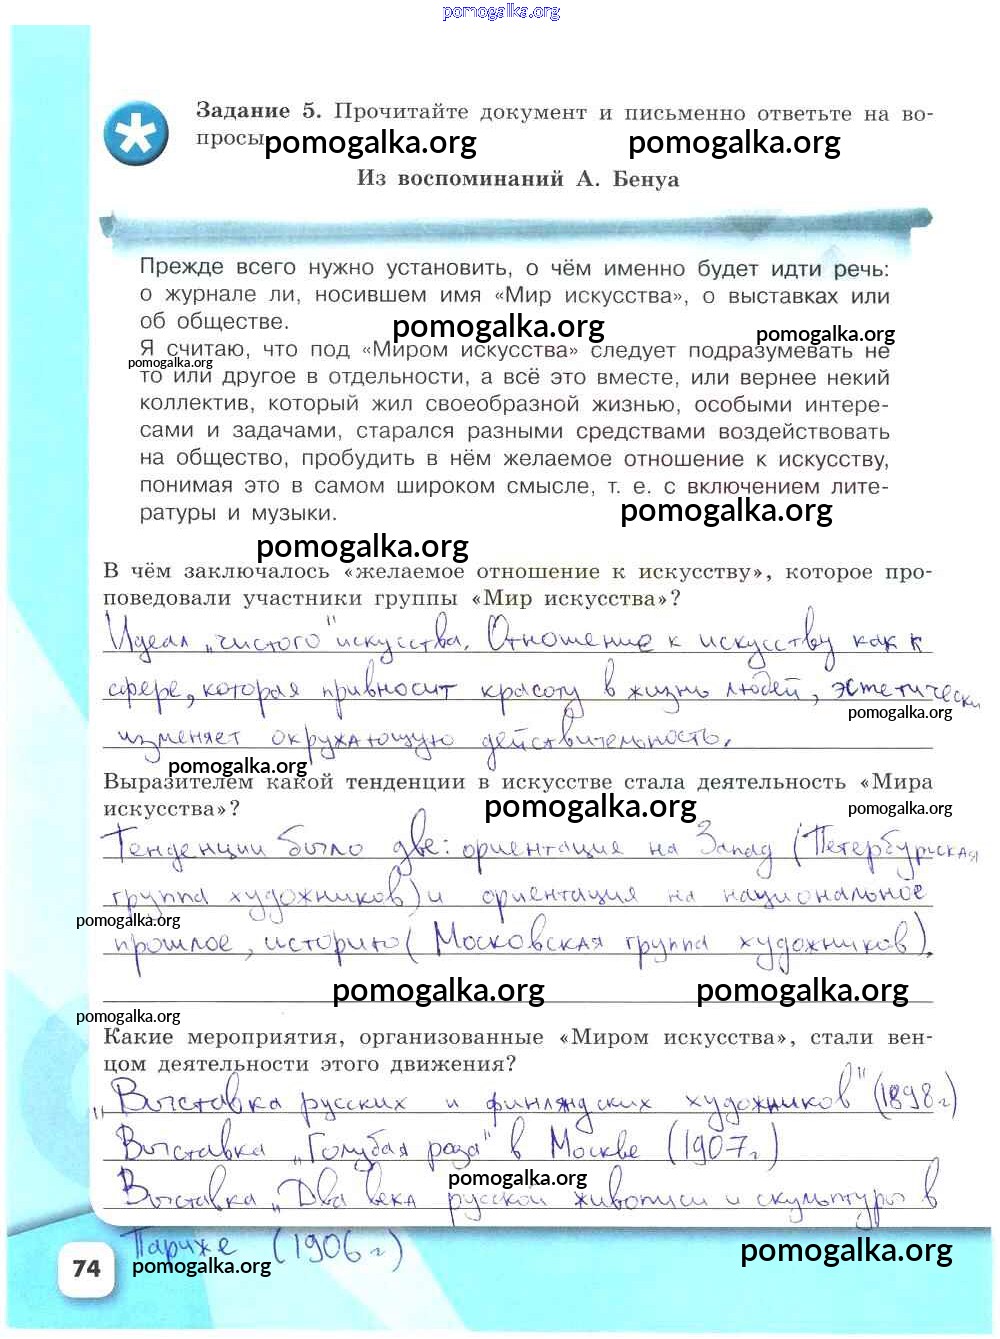 pomogalka.org
Задание 5. Прочитайте документ и письменно ответьте на во-
просы
pomogalka.org pomogalka.org
Из воспоминаний А. Бенуа
Прежде всего нужно установить, о чём именно будет идти речь:
о журнале ли, носившем имя «Мир искусства», о выставках или
об обществе.
pomogalka.org pomogalka.org
Я считаю, что под «Миром искусства» следует подразумевать не
pomogalka.org
то или другое в отдельности, а всё это вместе, или вернее некий
коллектив, который жил своеобразной жизнью, особыми интере-
сами и задачами, старался разными средствами воздействовать
на общество, пробудить в нём желаемое отношение к искусству,
понимая это в самом широком смысле, т. е. с включением лите-
ратуры и музыки.
pomogalka.org
pomogalka.org
В чём заключалось «желаемое отношение к искусству», которое про-
поведовали участники группы «Мир искусства»?
Идеал „чистого" искусства. Отношение к искусству как к
сфере, которая привносит красоту в жизнь людей, эстетически
pomogalka.org
изменяет окружающую действительность.
pomogalka.org
Выразителем какой тенденции в искусстве стала деятельность «Мира
искусства»?
pomogalka.org pomogalka.org
Тенденции было две: ориентация на Запад (Петербургская
группа художников) и ориентация на национальное
pomogalka.org
прошлое, историю (Московская группа художников).
pomogalka.org pomogalka.org
pomogalka.org
Какие мероприятия, организованные «Миром искусства», стали вен-
цом деятельности этого движения?
„Выставка русских и финляндских художников" (1898 г)
Выставка „Голубая роза" в Москве (1907 г.)
pomogalka.org
Выставка „Два века русской живописи и скульптуры в
Париже (1906 г)
74
pomogalka.org pomogalka.org